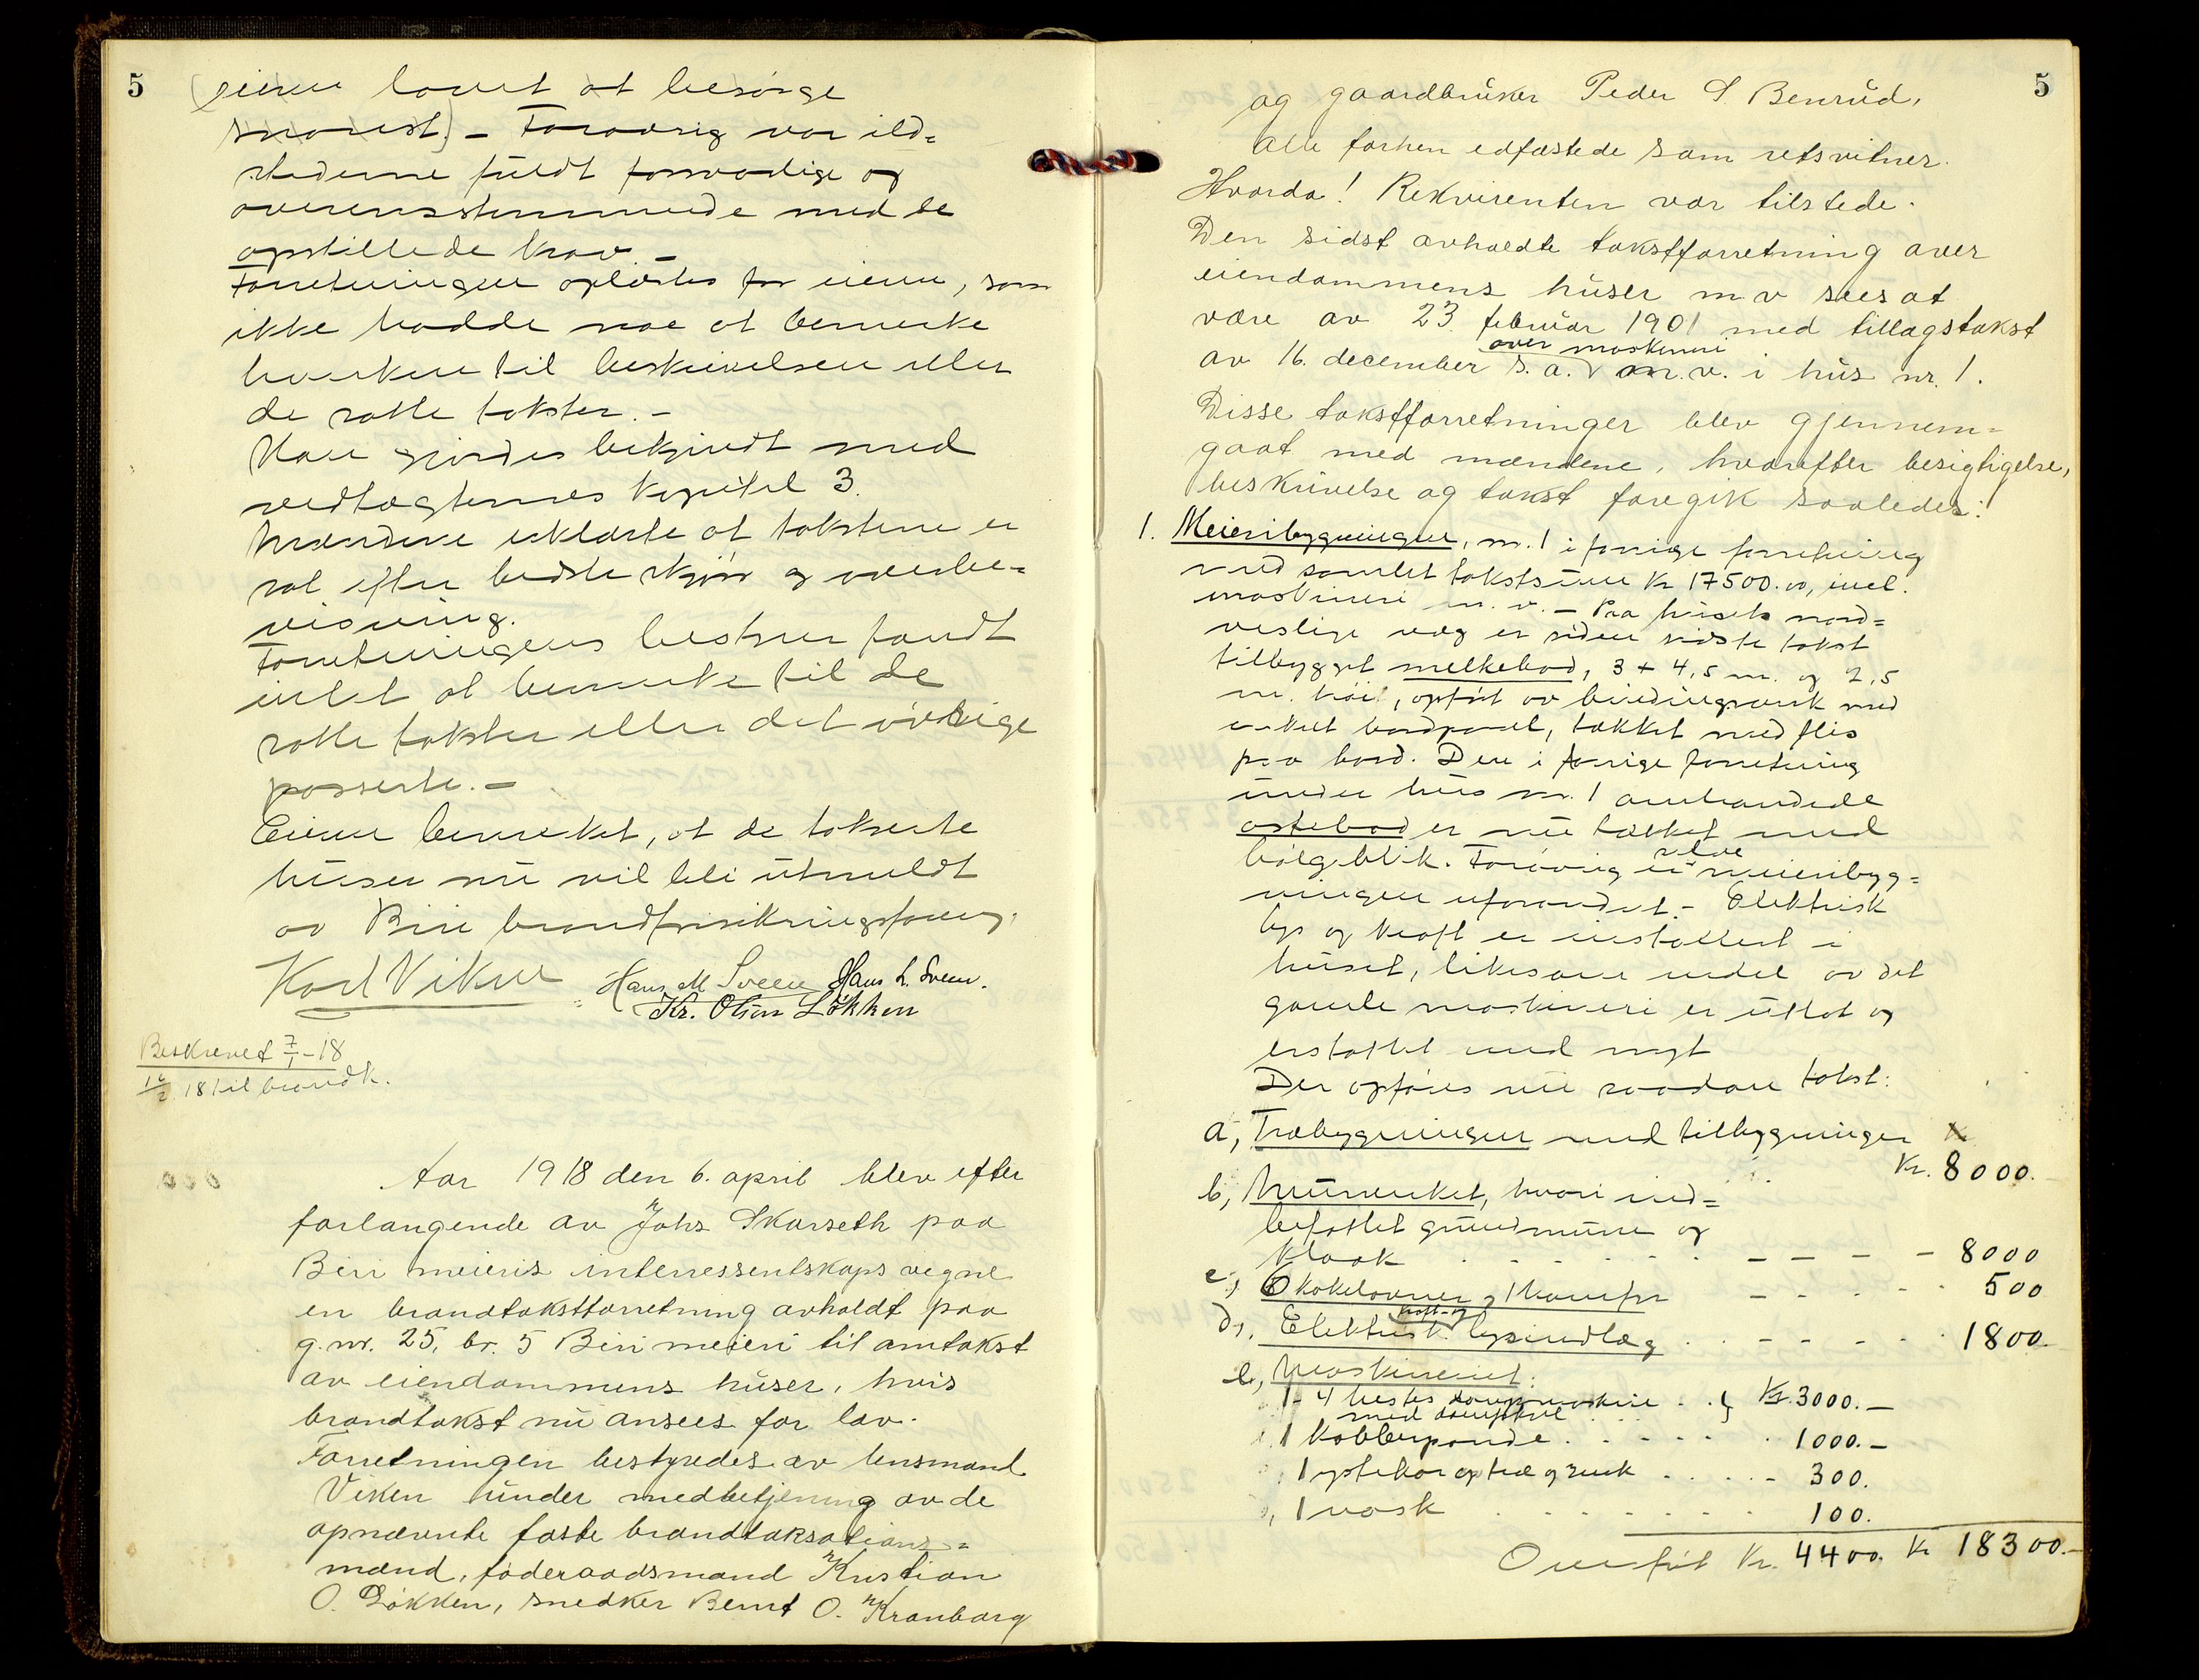 5
eieren lovet at besørge
snarest). - Forøvrig var ild=
stederne fuldt forsvarlige og
overensstemmende med de
opstillede krav. -
Forretningen oplæstes for eieren, som
ikke hadde noe at bemerke
hverken til beskrivelsen eller
de satte takster. -
Han gjordes bekjendt med
vedtægternes kapitel 3.
Mændene erklærte at taksterne er
sat efter bedste skjøn og overbe=
visning.
Forretningens bestyrer fandt
intet at bemerke til de
satte takster eller det øvrige
passerte. -
Eieren bemerket, at de takserte
huser nu vil bli utmeldt
av Biri brandforsikringsforeng.
Karl Viken Hans M Sveen Hans L. Sveen.
Kr. Olsen Løkken
Beskrevet 7/1-18
12/2 18 til brandk.
Aar 1918 den 6. april blev efter
forlangende av Johs Skarseth paa
Biri meieris interressentskaps vegne
en brandtakstforretning avholdt paa
g.nr. 25, br. 5 Biri meieri til omtakst
av eiendommens huser, hvis
brandtakst nu ansees for lav.
Forretningen bestyredes av lensmand
Viken under medbetjening av de
opnævnte faste brandtaksations=
mænd, føderaadsmand Kristian
O. Løkken, snedker Bernt O. Kranborg
5
og gaardbruker Peder S Benrud,
alle forhen edfæstede som retsvitner.
Hvorda! Rekvirenten var tilstede.
Den sidst avholdte takstforretning over
eiendommens huser m v sees at
være av 23 februar 1901 med tillægstakst
over maskineri
av 16. december s. a. m. v. i hus nr. 1.
Disse takstforretninger blev gjennem=
gaat med mændene, hvorefter besigtigelse,
beskrivelse og takst foregik saaledes:
1. Meieribygningen, nr. 1 i forrige forretning
med samlet takstsum kr 17500.00, incl.
maskineri m. v. - Paa husets nord=
vestlige væg er siden sidste takst
tilbygget melkebod, 3 + 4,5 m. og 2,5
m. høi, opført av bindingsverk med
enkelt bordpanel, tækket med flis
paa bord. Den i forrige forretning
under hus nr. 1 omhandlede
ostebod er nu tækket med
bølgeblik. Forøvrig er selve meieribyg=
ningen uforandret. - Elektrisk
lys og kraft er installert i
huset, likesom endel av det
gamle maskineri er uttat og
erstattet med nyt
Der opføres nu saadan takst:
a, Træbygningen med tilbygninger
Kr. 8000.
b, Murverket, hvori ind=
befattet grundmure og
kloak - - - - 8000
c, 6 kokelovner, 1 komfyr - - - 500
kraft- og
d, Elektrisk lysindlæg - - - 1800.
e, Maskineriet:
1 4 hestes dampmaskine . . } Kr. 3000. -
med dampkjel
1 kobberpande . . . . . 1000. -
1 ystekar av træ og zink . . . . 300.
1 vask . . . . . . . 100.
Overført Kr. 4400. Kr 18300. -